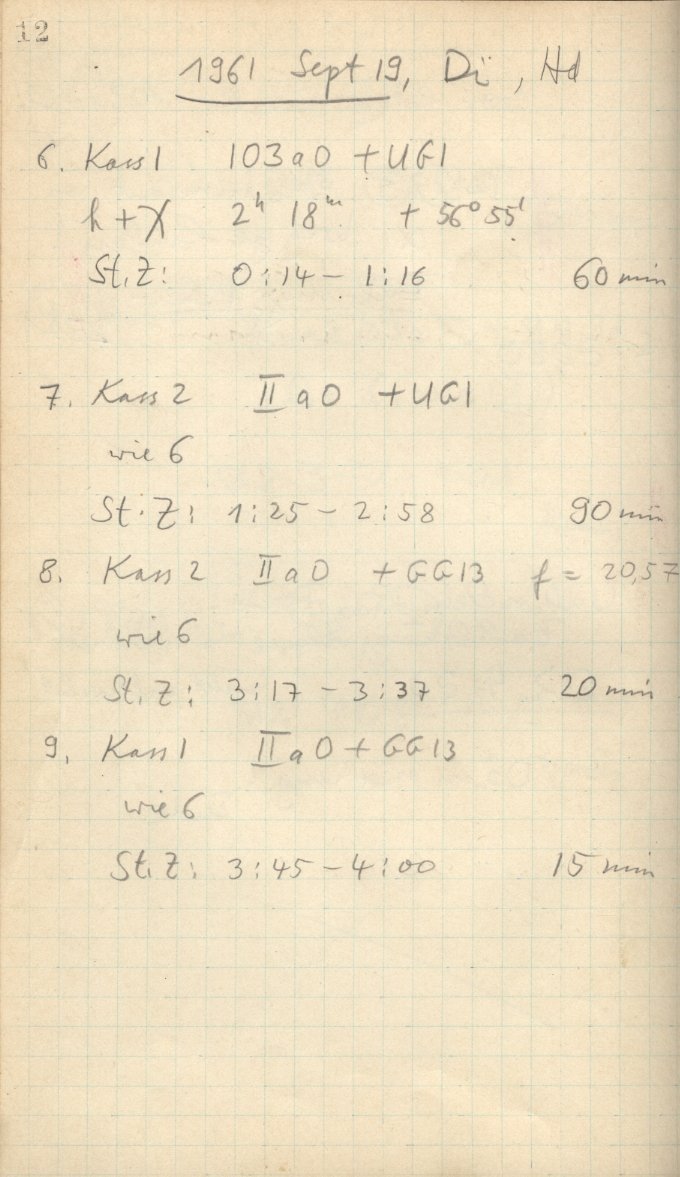 12
1961 Sept 19, Di, Hd
6. Kass 1 103aO + UG1
h + χ 2h 18m + 56° 55'
St.Z: 0:14 – 1:16 60 min
7. Kass 2 II aO + UG1
wie 6
St.Z: 1:25 – 2:58 90 min
8. Kass 2 II aO + GG13 f = 20,57
wie 6
St.Z: 3:17 – 3:37 20 min
9. Kass 1 II aO + GG13
wie 6
St.Z: 3:45 – 4:00 15 min